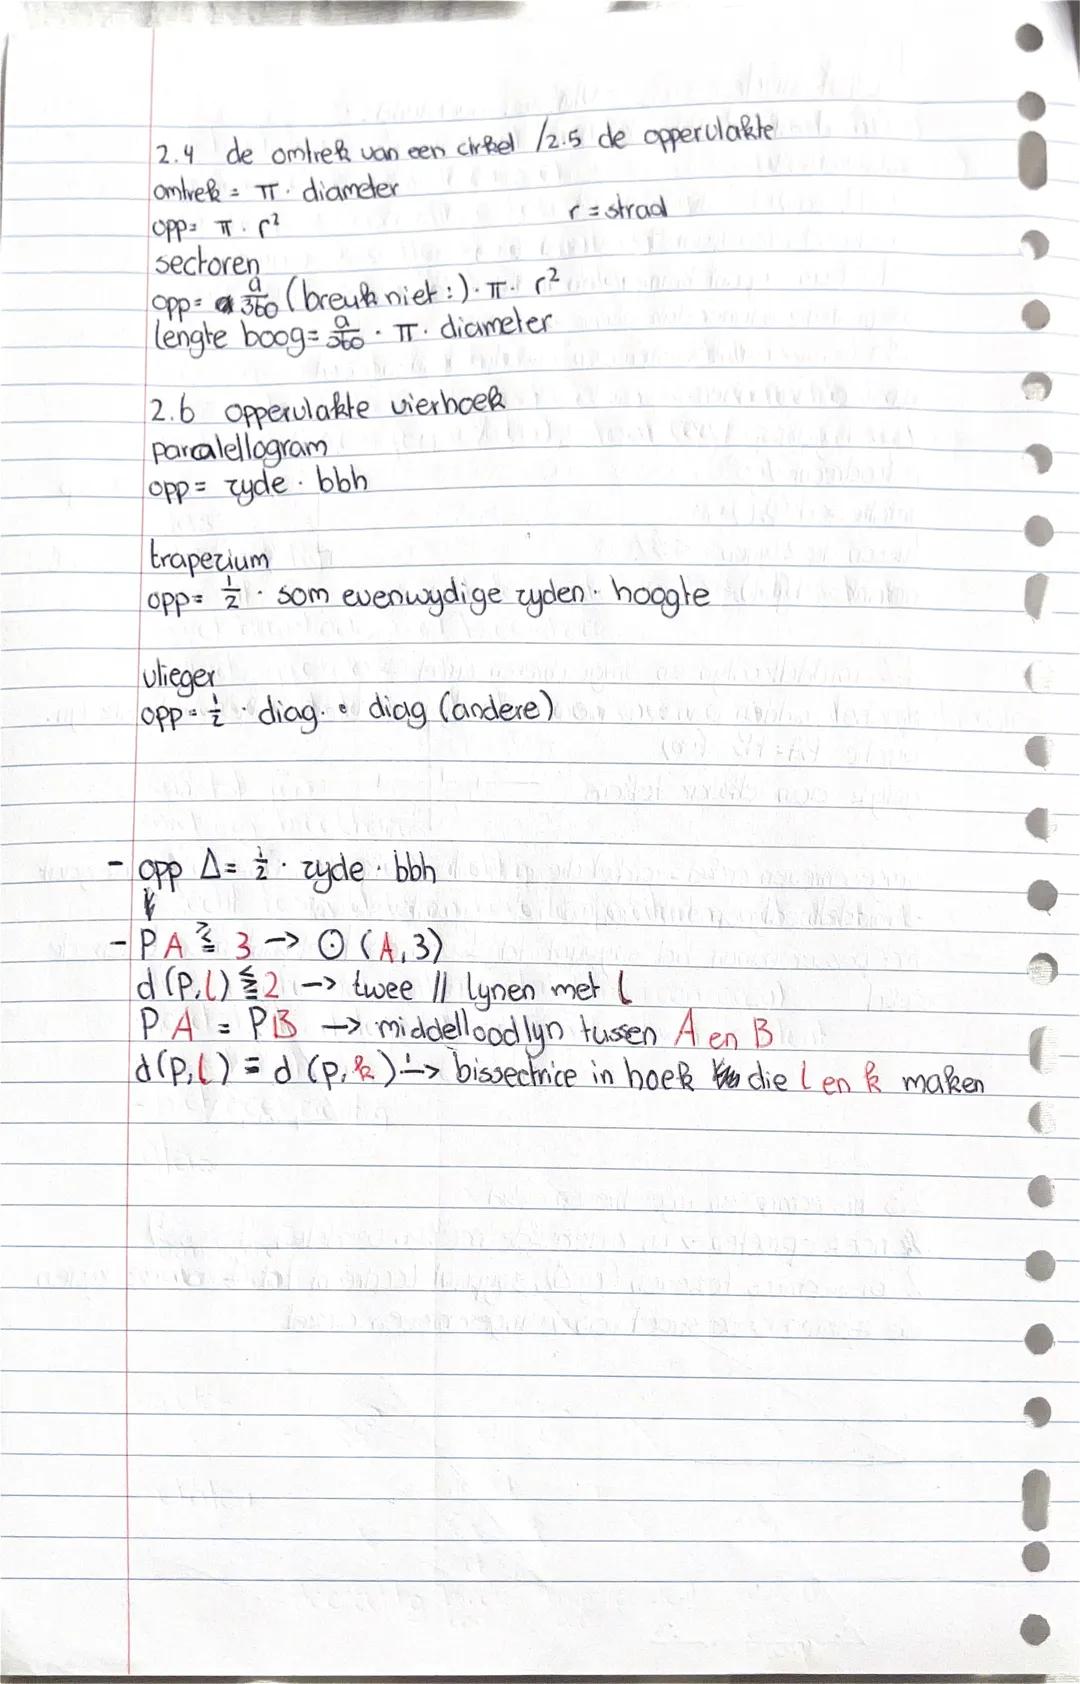 2.4 de omtrek van een cirkel /2.5 de oppervlakte
omtrek = π · diameter
opp = π · r² r = straal
sectoren
opp = a/360 (breuk niet :) · π · r²
lengte boog = a/360 · π · diameter
2.6 oppervlakte vierhoek
paralellogram
opp = zyde · bbh
trapezium
opp = 1/2 · som evenwydige zyden · hoogte
vlieger
opp = 1/2 · diag. · diag (andere)
- opp Δ = 1/2 · zyde · bbh
- PA ⪌ 3 -> ⊙ (A,3)
d(P,l) ⪋ 2 -> twee // lynen met l
PA = PB -> middelloodlyn tussen A en B
d(P,l) = d(P,k) -> bissectrice in hoek die l en k maken